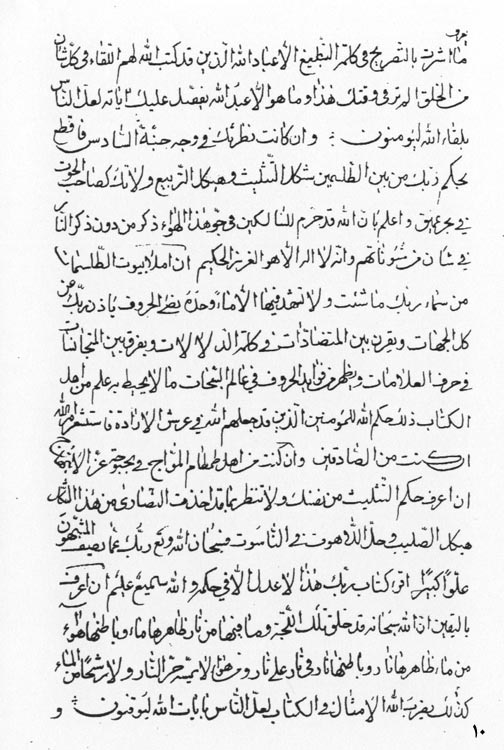 ما اشرت بالتصريح في كلمة التبليغ الا عباد الله الذين قد كتب الله لهم اللقاء في كل شان
من الخلق المر في وقتك هذا وما هو الا عبد الله يفصل عليك اياته لعل الناس
بلقاء الله ليومنون وان كانت نظرتك في وجه السادس فاقطع
بحكم ربك من بين الطلسمين شكل التثليث وهيكل التربيع ولا تك كصاحب الحوت
في بحر عميق واعلم بان الله قد حرم للسالكين في جو هذا الهواء ذكر من دون ذكر النار
في شان من شئوناتهم وانه لا اله الا هو العزيز الحكيم ان املا بيوت الطلسمات
من سماء ربك ما شئت ولا تشهد فيها الا ماء وحدة يضئ الحروف باذن ربك عن
كل الجهات ويقرن بين المتضادات في كلمة الدلالات ويفرق بين المتجانسات
في حرف العلامات ويظهر من فوايد الحروف في عالم السبحات ما لا يحيط به علم من اهل
الكتاب ذلك حكم الله للمومنين الذين قد جعلهم الله في عرش الارادة فاستشعر امر الله
ان كنت من الصادقين وان كنت من اهل طمطام المواج في بحبوحة عز الابتهاج
ان اعرف حكم التثليث من نفسك ولا تنظر بما قد اخذت النصارى من هذا الشكل
هيكل الصليب وحل اللاهوت في الناسوت فسبحان الله ربك عما يصف المشبهون
علوا كبيرا اقرا كتاب ربك هذا لا عدل الا في حكمه والله سميع عليم ان اعرف
باليقين ان الله سبحانه قد خلق تلك اللجة وما فيها من نار ظاهرها ماء وباطنها هواء
من ماء ظاهرها نار وباطنها نار في نار على نار نار ولا رشحا من الماء
كذلك يضرب الله الامثال في الكتاب لعل الناس بايات الله ليوقنون و
١٠